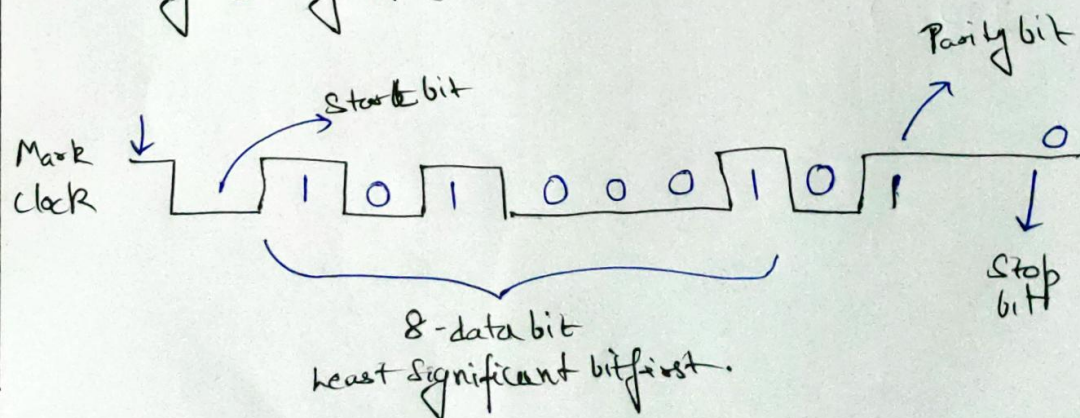 Parity bit
Start bit
Mark
clock
1 0 1 0 0 0 1 0 1 0
Stop
bit
8-data bit
Least significant bit first.